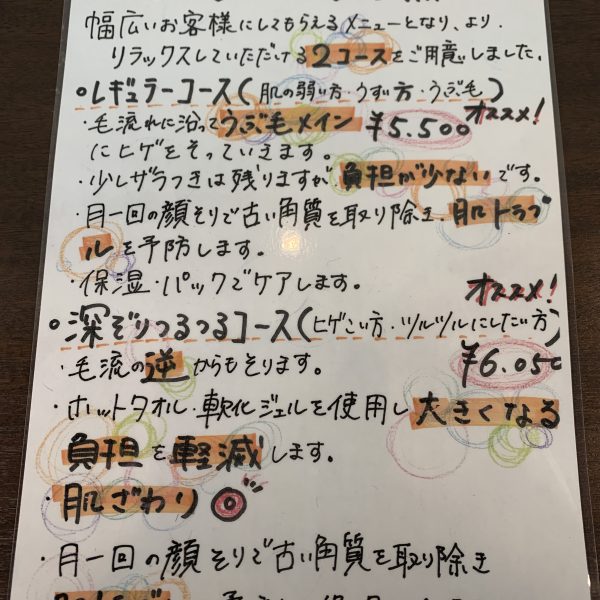 幅広いお客様にしてもらえるメニューとなり、より
リラックスしていただける2コースをご用意しました。
レギュラーコース(肌の弱い方・うすい方・うぶ毛)
オススメ!
・毛流れに沿ってうぶ毛メイン ¥5.500
にヒゲをそっていきます。
・少しザラつきは残りますが、負担が少ないです。
・月一回の顔そりで古い角質を取り除き、肌トラブ
ルを予防します。
・保湿・パックでケアします。
オススメ!
深ぞりつるつるコース(ヒゲこい方・ツルツルにしたい方)
・毛流の逆からもそります。 ¥6.050
・ホットタオル・軟化ジェルを使用し大きくなる
負担を軽減します。
・肌ざわり◎
・月一回の顔そりで古い角質を取り除き